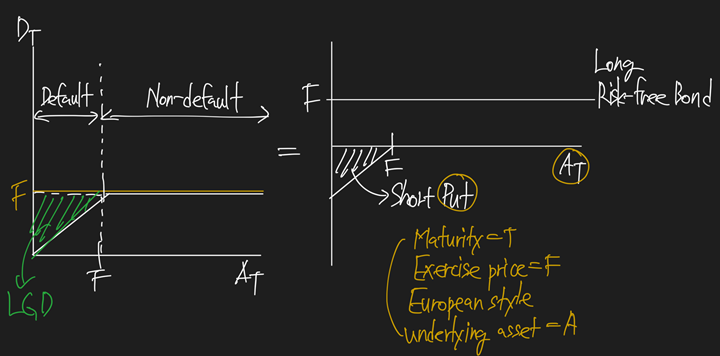 D_T
Default
Non-default
F
F
A_T
LGD
=
F
Long
Risk-free Bond
F
A_T
Short Put
Maturity=T
Exercise price=F
European style
underlying asset=A